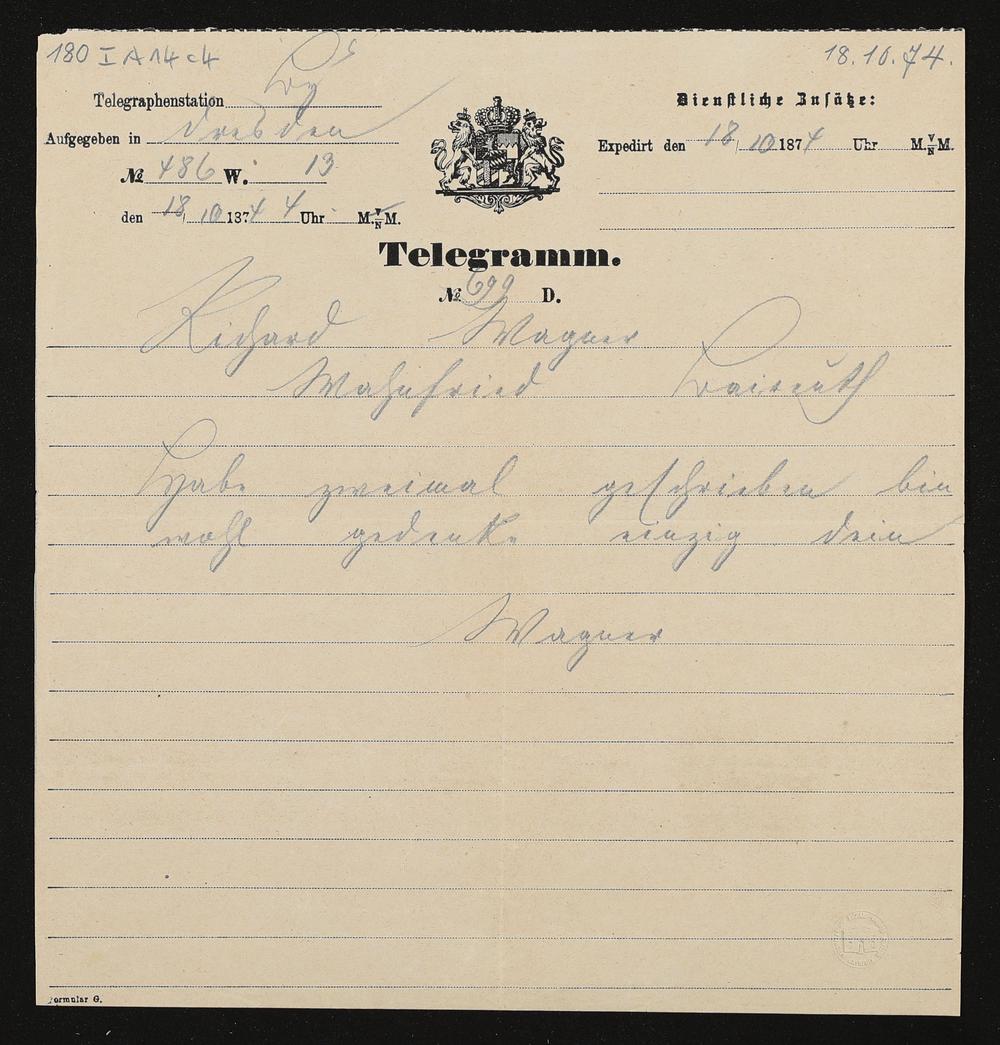 180 I A 14 c 4
18.10.74.
Telegraphenstation By
Aufgegeben in Dresden
№ 486 W. 13
den 18/10 1874 4 Uhr M. V/N M.
Dienstliche Zusätze:
Expedirt den 18/10 1874 Uhr M. V/N M.
Telegramm.
№ 699 D.
Richard Wagner
Wahnfried Baireuth
Habe zweimal geschrieben bin
wohl gedenke einzig dein
Wagner
Formular G.